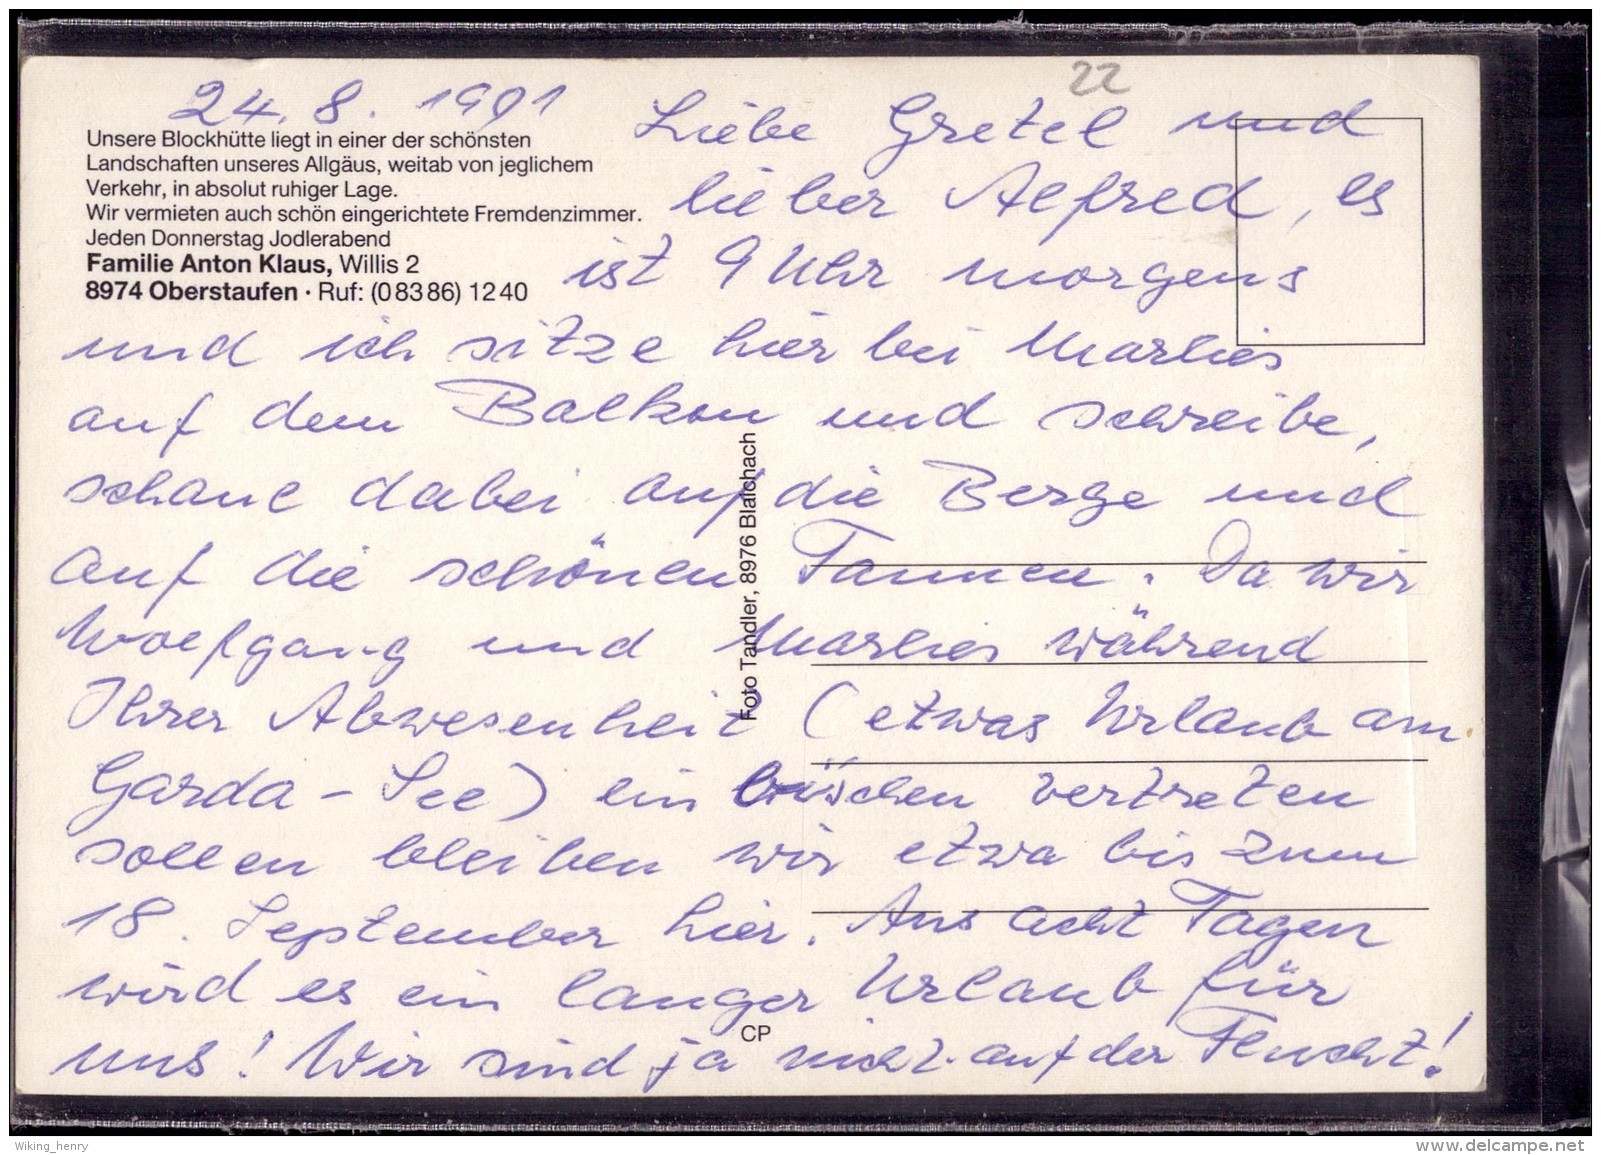 22
24. 8. 1991
Unsere Blockhütte liegt in einer der schönsten
Landschaften unseres Allgäus, weitab von jeglichem
Verkehr, in absolut ruhiger Lage.
Wir vermieten auch schön eingerichtete Fremdenzimmer.
Jeden Donnerstag Jodlerabend
Familie Anton Klaus, Willis 2
8974 Oberstaufen · Ruf: (0 83 86) 12 40
Liebe Gretel und
lieber Alfred, es
ist 9 Uhr morgens
und ich sitze hier bei Marlies
auf dem Balkon und schreibe,
schaue dabei auf die Berge und
auf die schönen Tannen. Da wir
Wolfgang und Marlies während
Ihrer Abwesenheit (etwas Urlaub am
Garda-See) ein bißchen vertreten
sollen bleiben wir etwa bis zum
18. September hier. Aus acht Tagen
wird es ein langer Urlaub für
uns! Wir sind ja nicht auf der Flucht!
Foto Tandler, 8976 Blaichach
CP
Wiking_henry
www.delcampe.net